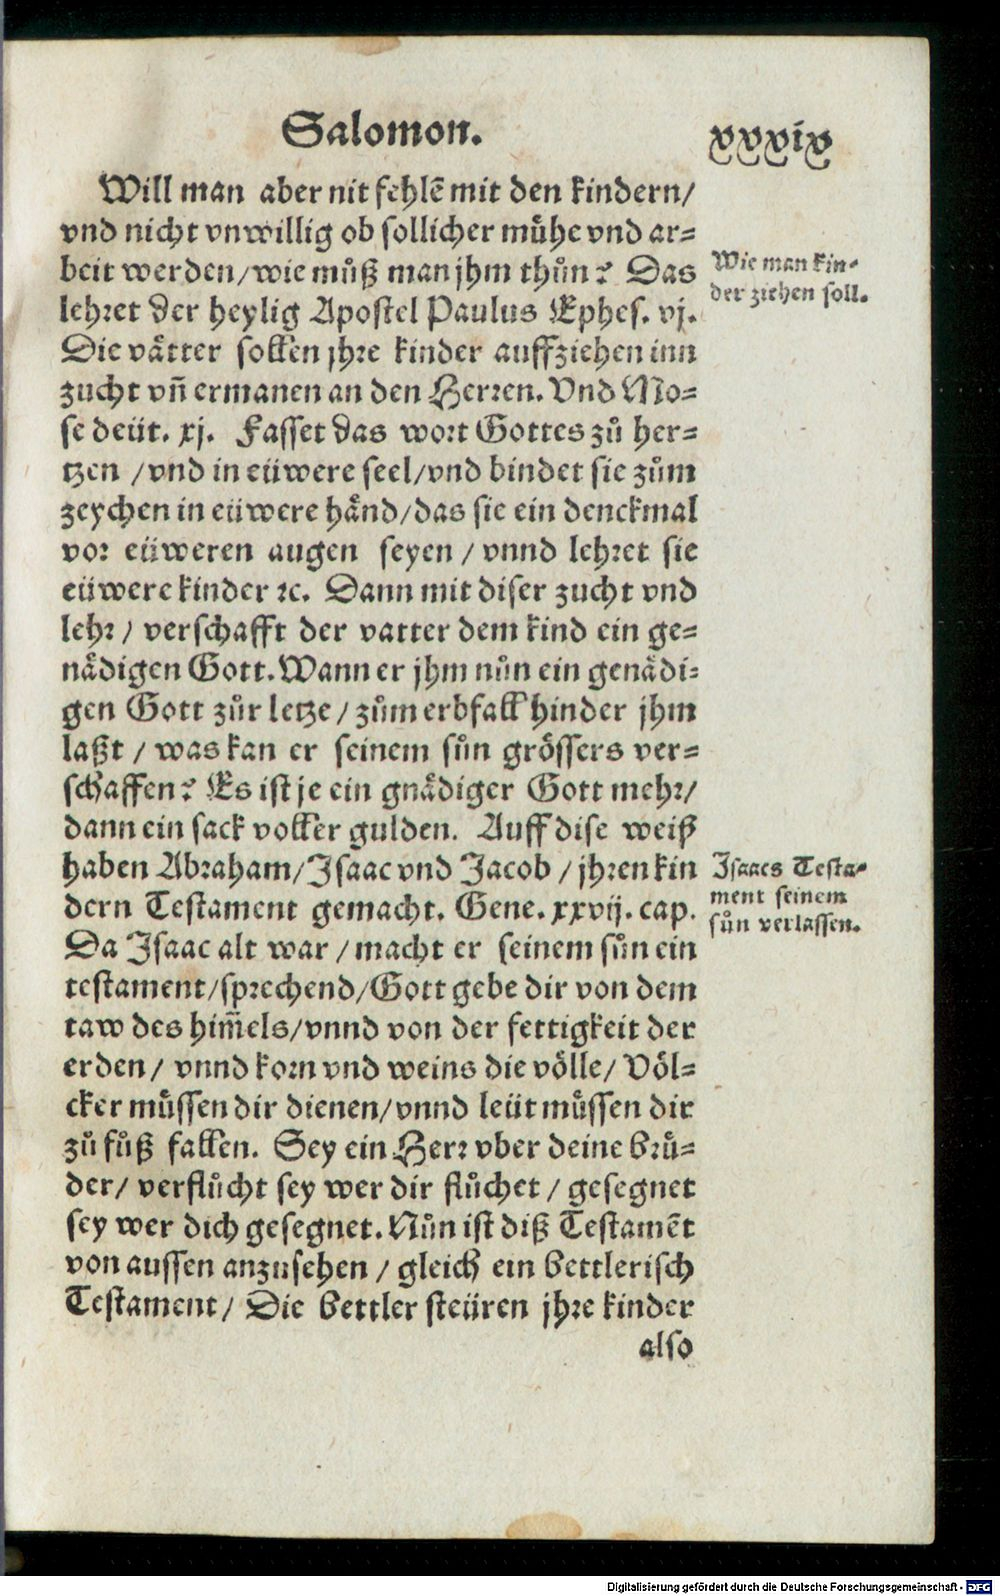 Salomon.
xxxix
Will man aber nit fehlē mit den kindern/
vnd nicht vnwillig ob sollicher mühe vnd ar⸗
beit werden/wie můß man jhm thůn? Das
lehret der heylig Apostel Paulus Ephes. vj.
Die vätter sollen jhre kinder auffziehen inn
zucht vñ ermanen an den Herren. Vnd Mo⸗
se deüt. xj. Fasset das wort Gottes zů her⸗
tzen /vnd in eüwere seel/vnd bindet sie zům
zeychen in eüwere händ/das sie ein denckmal
vor eüweren augen seyen / vnnd lehret sie
eüwere kinder ꝛc. Dann mit diser zucht vnd
lehr / verschafft der vatter dem kind ein ge⸗
nädigen Gott. Wann er jhm nůn ein genädi⸗
gen Gott zůr letze / zům erbfall hinder jhm
laßt / was kan er seinem sůn grössers ver⸗
schaffen? Es ist je ein gnädiger Gott mehr/
dann ein sack voller gulden. Auff dise weiß
haben Abraham/Isaac vnd Jacob / jhren kin
dern Testament gemacht. Gene. xxvij. cap.
Da Isaac alt war / macht er seinem sůn ein
testament/sprechend/Gott gebe dir von dem
taw des him̃els/vnnd von der fettigkeit der
erden / vnnd korn vnd weins die völle/ Völ⸗
cker müssen dir dienen/vnnd leüt müssen dir
zů fůß fallen. Sey ein Herr vber deine brü⸗
der/ verflůcht sey wer dir flůchet / gesegnet
sey wer dich gesegnet. Nůn ist diß Testamēt
von aussen anzusehen / gleich ein bettlerisch
Testament/ Die bettler steüren jhre kinder
also
Wie man kin⸗
der ziehen soll.
Isaacs Testa⸗
ment seinem
sůn verlassen.
Digitalisierung gefördert durch die Deutsche Forschungsgemeinschaft - DFG